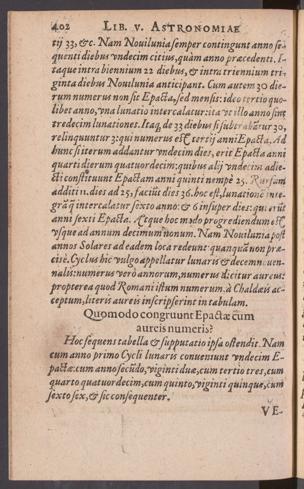 402 LIB. V. ASTRONOMIAE
tij 33, &c. Nam Novilunia semper contingunt anno se-
quenti diebus vndecim citius, quàm anno præcedenti. I-
taque intra biennium 22 diebus, & intra triennium tri-
ginta diebus Novilunia anticipant. Cum autem 30 die-
rum numerus non sit Epacta, sed mensis: ideo tertio quo-
libet anno, vna lunatio intercalatur: ita vt illo anno sint
tredecim lunationes. Itaq; de 33 diebus si subtrahātur 30,
relinquuntur 3: qui numerus est tertij anni Epacta. Ad
hunc si iterum addantur vndecim dies, erit Epacta anni
quarti dierum quatuordecim: quibus alij vndecim adie-
cti constituunt Epactam anni quinti nempè 25. Rursum
additi 11. dies ad 25, faciūt dies 36. hoc est, lunationē inte-
grā intercalatur sexto anno: & 6 insuper dies: qui erūt
anni sexti Epacta. Atque hoc modo progrediendum est
vsque ad annum decimum nonum. Nam Novilunia post
annos Solares ad eadem loca redeunt: quanquā non præ-
cisè. Cyclus hic vulgo appellatur lunaris & decemnoven-
nalis: numerus verò annorum, numerus dicitur aureus:
propterea quod Romani istum numerum à Chaldæis ac-
ceptum, literis aureis inscripserint in tabulam.
Quomodo congruunt Epactæ cum
aureis numeris?
Hoc sequens tabella & supputatio ipsa ostendit. Nam
cum anno primo Cycli lunaris conveniunt vndecim E-
pactæ: cum anno secūdo, viginti duæ, cum tertio tres, cum
quarto quatuordecim, cum quinto, viginti quinque, cum
sexto sex, & sic consequenter.
VE-